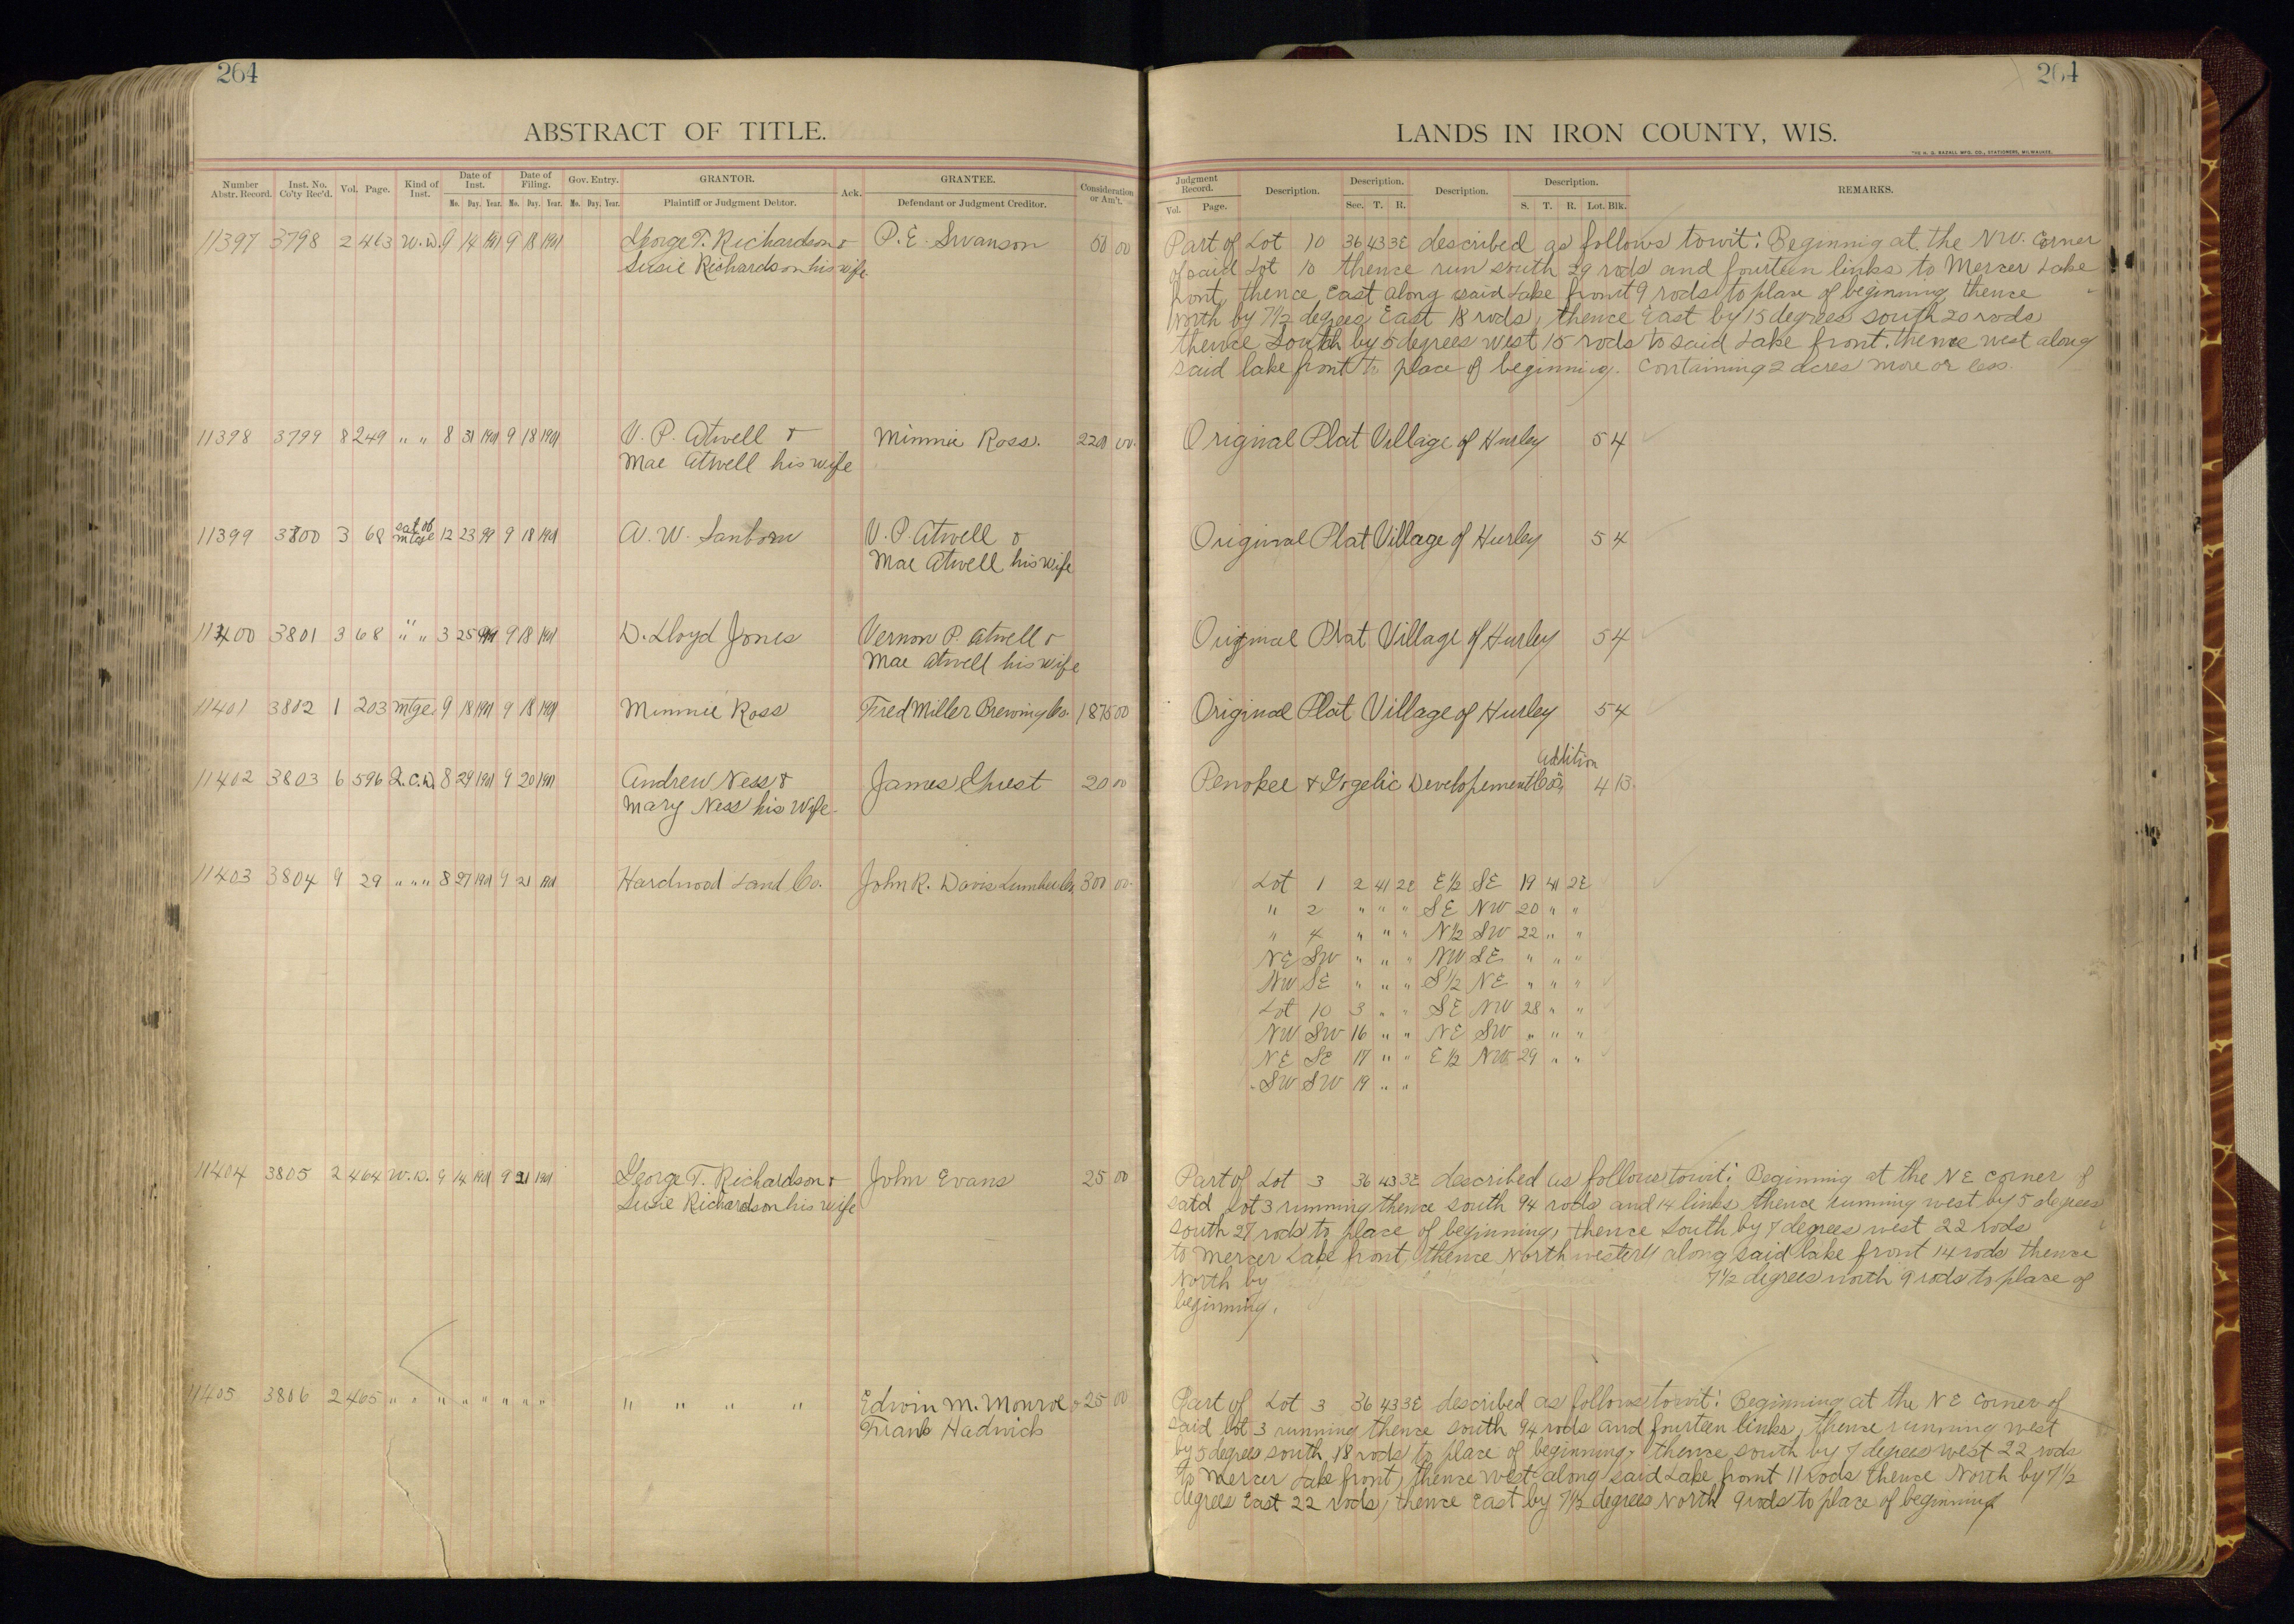 264
ABSTRACT OF TITLE.
Number Abstr. Record. Inst. No. Co'ty Rec'd. Vol. Page. Kind of Inst. Date of Inst. Mo. Day. Year. Date of Filing. Mo. Day. Year. Gov. Entry. Mo. Day. Year. GRANTOR. Plaintiff or Judgment Debtor. Ack. GRANTEE. Defendant or Judgment Creditor. Consideration or Am't.
11397 3798 2 463 W.D. 9 14 1901 9 18 1901 George T. Richardson & P. E. Swanson 50 00
Susie Richardson his wife
11398 3799 8 249 " " 8 31 1901 9 18 1901 V. P. Atwell & Minnie Ross. 2200 00
Mae Atwell his wife
11399 3800 3 68 sat of mtge 12 23 99 9 18 1901 A. W. Sanborn V. P. Atwell &
Mae Atwell his wife
11400 3801 3 68 " " 3 25 9 18 1901 D. Lloyd Jones Vernon P. Atwell &
Mae Atwell his wife
11401 3802 1 203 mtge 9 18 1901 9 18 1901 Minnie Ross Fred Miller Brewing Co. 1875 00
11402 3803 6 596 Q.C.D. 8 29 1901 9 20 1901 Andrew Ness & James Guest 20 00
Mary Ness his wife
11403 3804 9 29 " " " 8 27 1901 9 21 1901 Hardwood Land Co. John R. Davis Lumber Co. 300 00
11404 3805 2 464 W.D. 9 14 1901 9 21 1901 George T. Richardson & John Evans 25 00
Susie Richardson his wife
11405 3806 2 465 " " " " " " " " " " " " Edwin M. Monroe & 25 00
Frank Hadwich
264
LANDS IN IRON COUNTY, WIS.
THE H. G. RAZALL MFG. CO., STATIONERS, MILWAUKEE.
Judgment Record. Vol. Page. Description. Description. Sec. T. R. Description. Description. S. T. R. Lot. Blk. REMARKS.
Part of Lot 10 36 43 3E described as follows towit: Beginning at the NW. Corner
of said Lot 10 thence run south 29 rods and fourteen links to Mercer Lake
front, thence East along said Lake front 9 rods to place of beginning thence
North by 7 1/2 degrees East 18 rods, thence East by 15 degrees south 20 rods
thence South by 5 degrees west 15 rods to said Lake front. thence west along
said lake front to place of beginning. Containing 2 acres more or less.
Original Plat Village of Hurley 5 4
Original Plat Village of Hurley 5 4
Original Plat Village of Hurley 5 4
Original Plat Village of Hurley 5 4
Addition
Penokee & Gogebic Developement Co's 4 13
Lot 1 2 41 2E E 1/2 SE 19 41 2E
" 2 " " " SE NW 20 " "
" 4 " " " N 1/2 SW 22 " "
NE SW " " " NW SE " " "
NW SE " " " S 1/2 NE " " "
Lot 10 3 " " SE NW 28 " "
NW SW 16 " " NE SW " " "
NE SE 17 " " E 1/2 NW 29 " "
SW SW 19 " "
Part of Lot 3 36 43 3E described as follows towit: Beginning at the NE corner of
said Lot 3 running thence south 94 rods and 14 links thence running west by 5 degrees
south 27 rods to place of beginning, thence South by 7 degrees west 22 rods
to Mercer Lake front, thence North westerly along said lake front 14 rods thence
North by 7 1/2 degrees north 9 rods to place of
beginning.
Part of Lot 3 36 43 3E described as follows towit: Beginning at the NE corner of
said lot 3 running thence south 94 rods and fourteen links, thence running west
by 5 degrees south 18 rods to place of beginning, thence south by 7 degrees west 22 rods
to Mercer Lake front, thence West along said Lake front 11 rods thence North by 7 1/2
degrees East 22 rods, thence East by 7 1/2 degrees North 9 rods to place of beginning